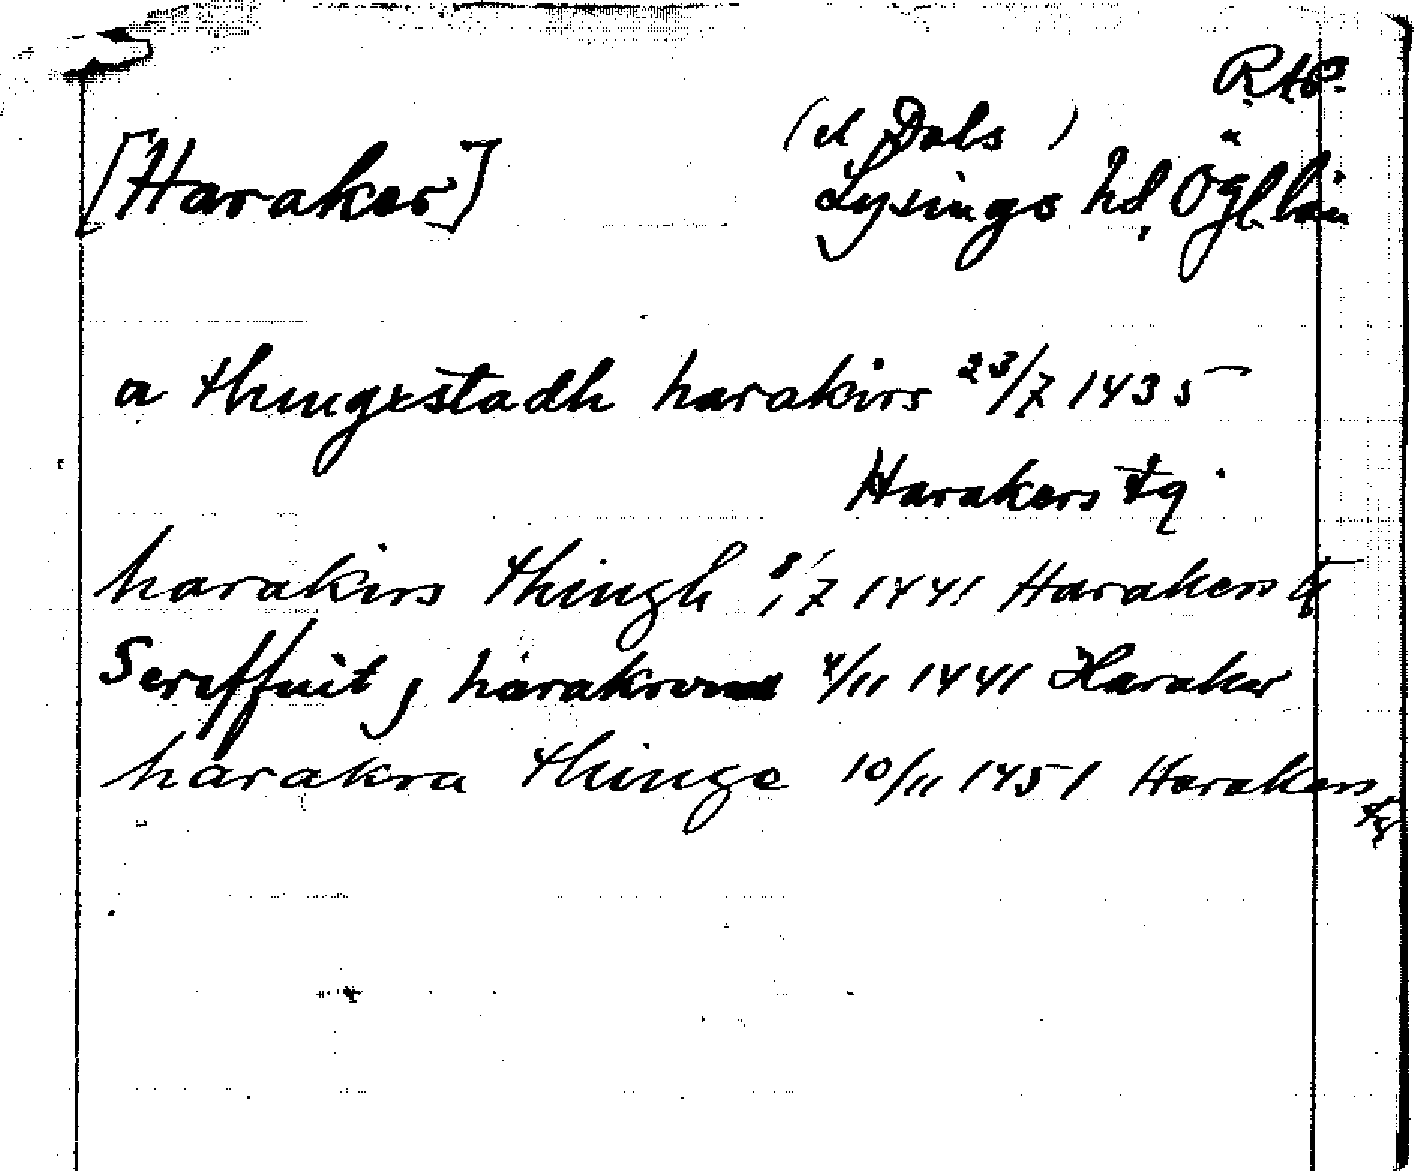 RAP.
(el Dals)
[Haraker] Lysings hd, Ögl. län
a thingxstadh harakirs 23/7 1435
Harakers tg
harakirs thingh 8/7 1441 Harakers tg
Scriffuit j harakrom 4/11 1441 Haraker
harakra thinge 10/11 1451 Harakers tg